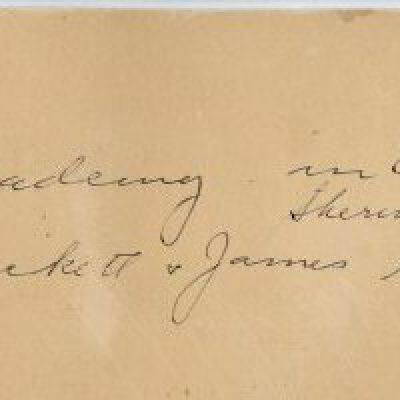 ademy - in
Sherm
ckett & James